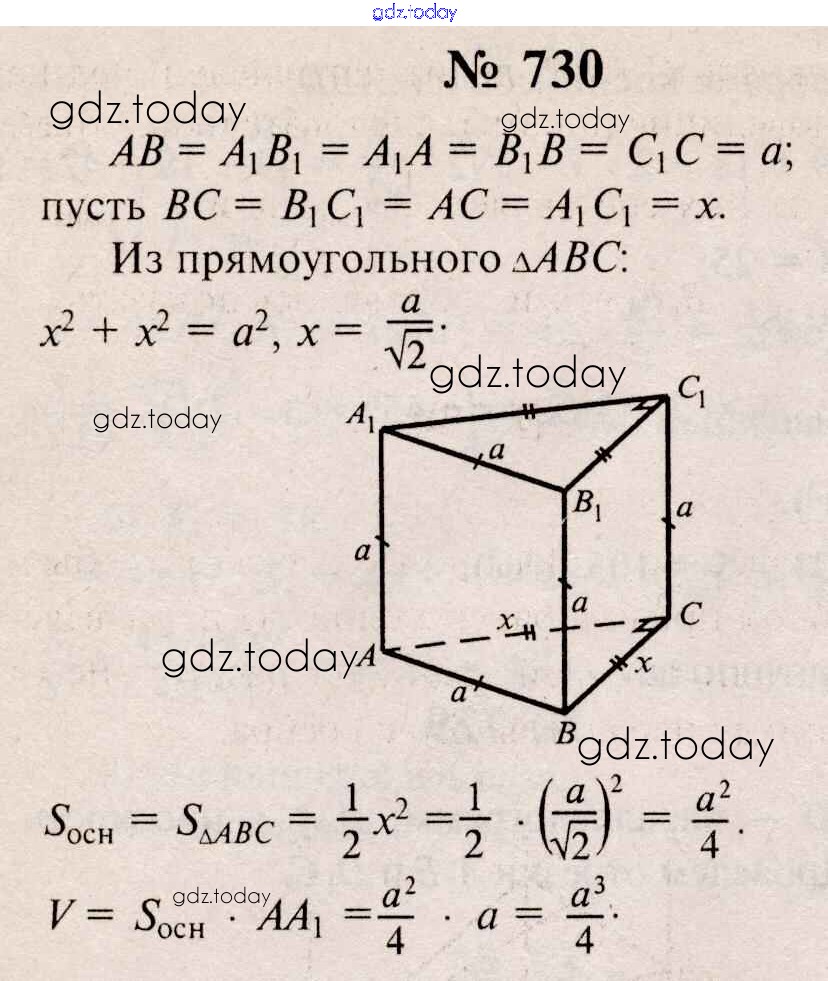 gdz.today
№ 730
gdz.today gdz.today
AB = A₁B₁ = A₁A = B₁B = C₁C = a;
пусть BC = B₁C₁ = AC = A₁C₁ = x.
Из прямоугольного △ABC:
x² + x² = a², x = a/√2.
gdz.today
gdz.today
C₁
A₁
a
B₁
a
a
a
x
C
gdz.today A
x
a
B
gdz.today
Sосн = S△ABC = 1/2 x² = 1/2 · (a/√2)² = a²/4.
gdz.today
V = Sосн · AA₁ = a²/4 · a = a³/4.